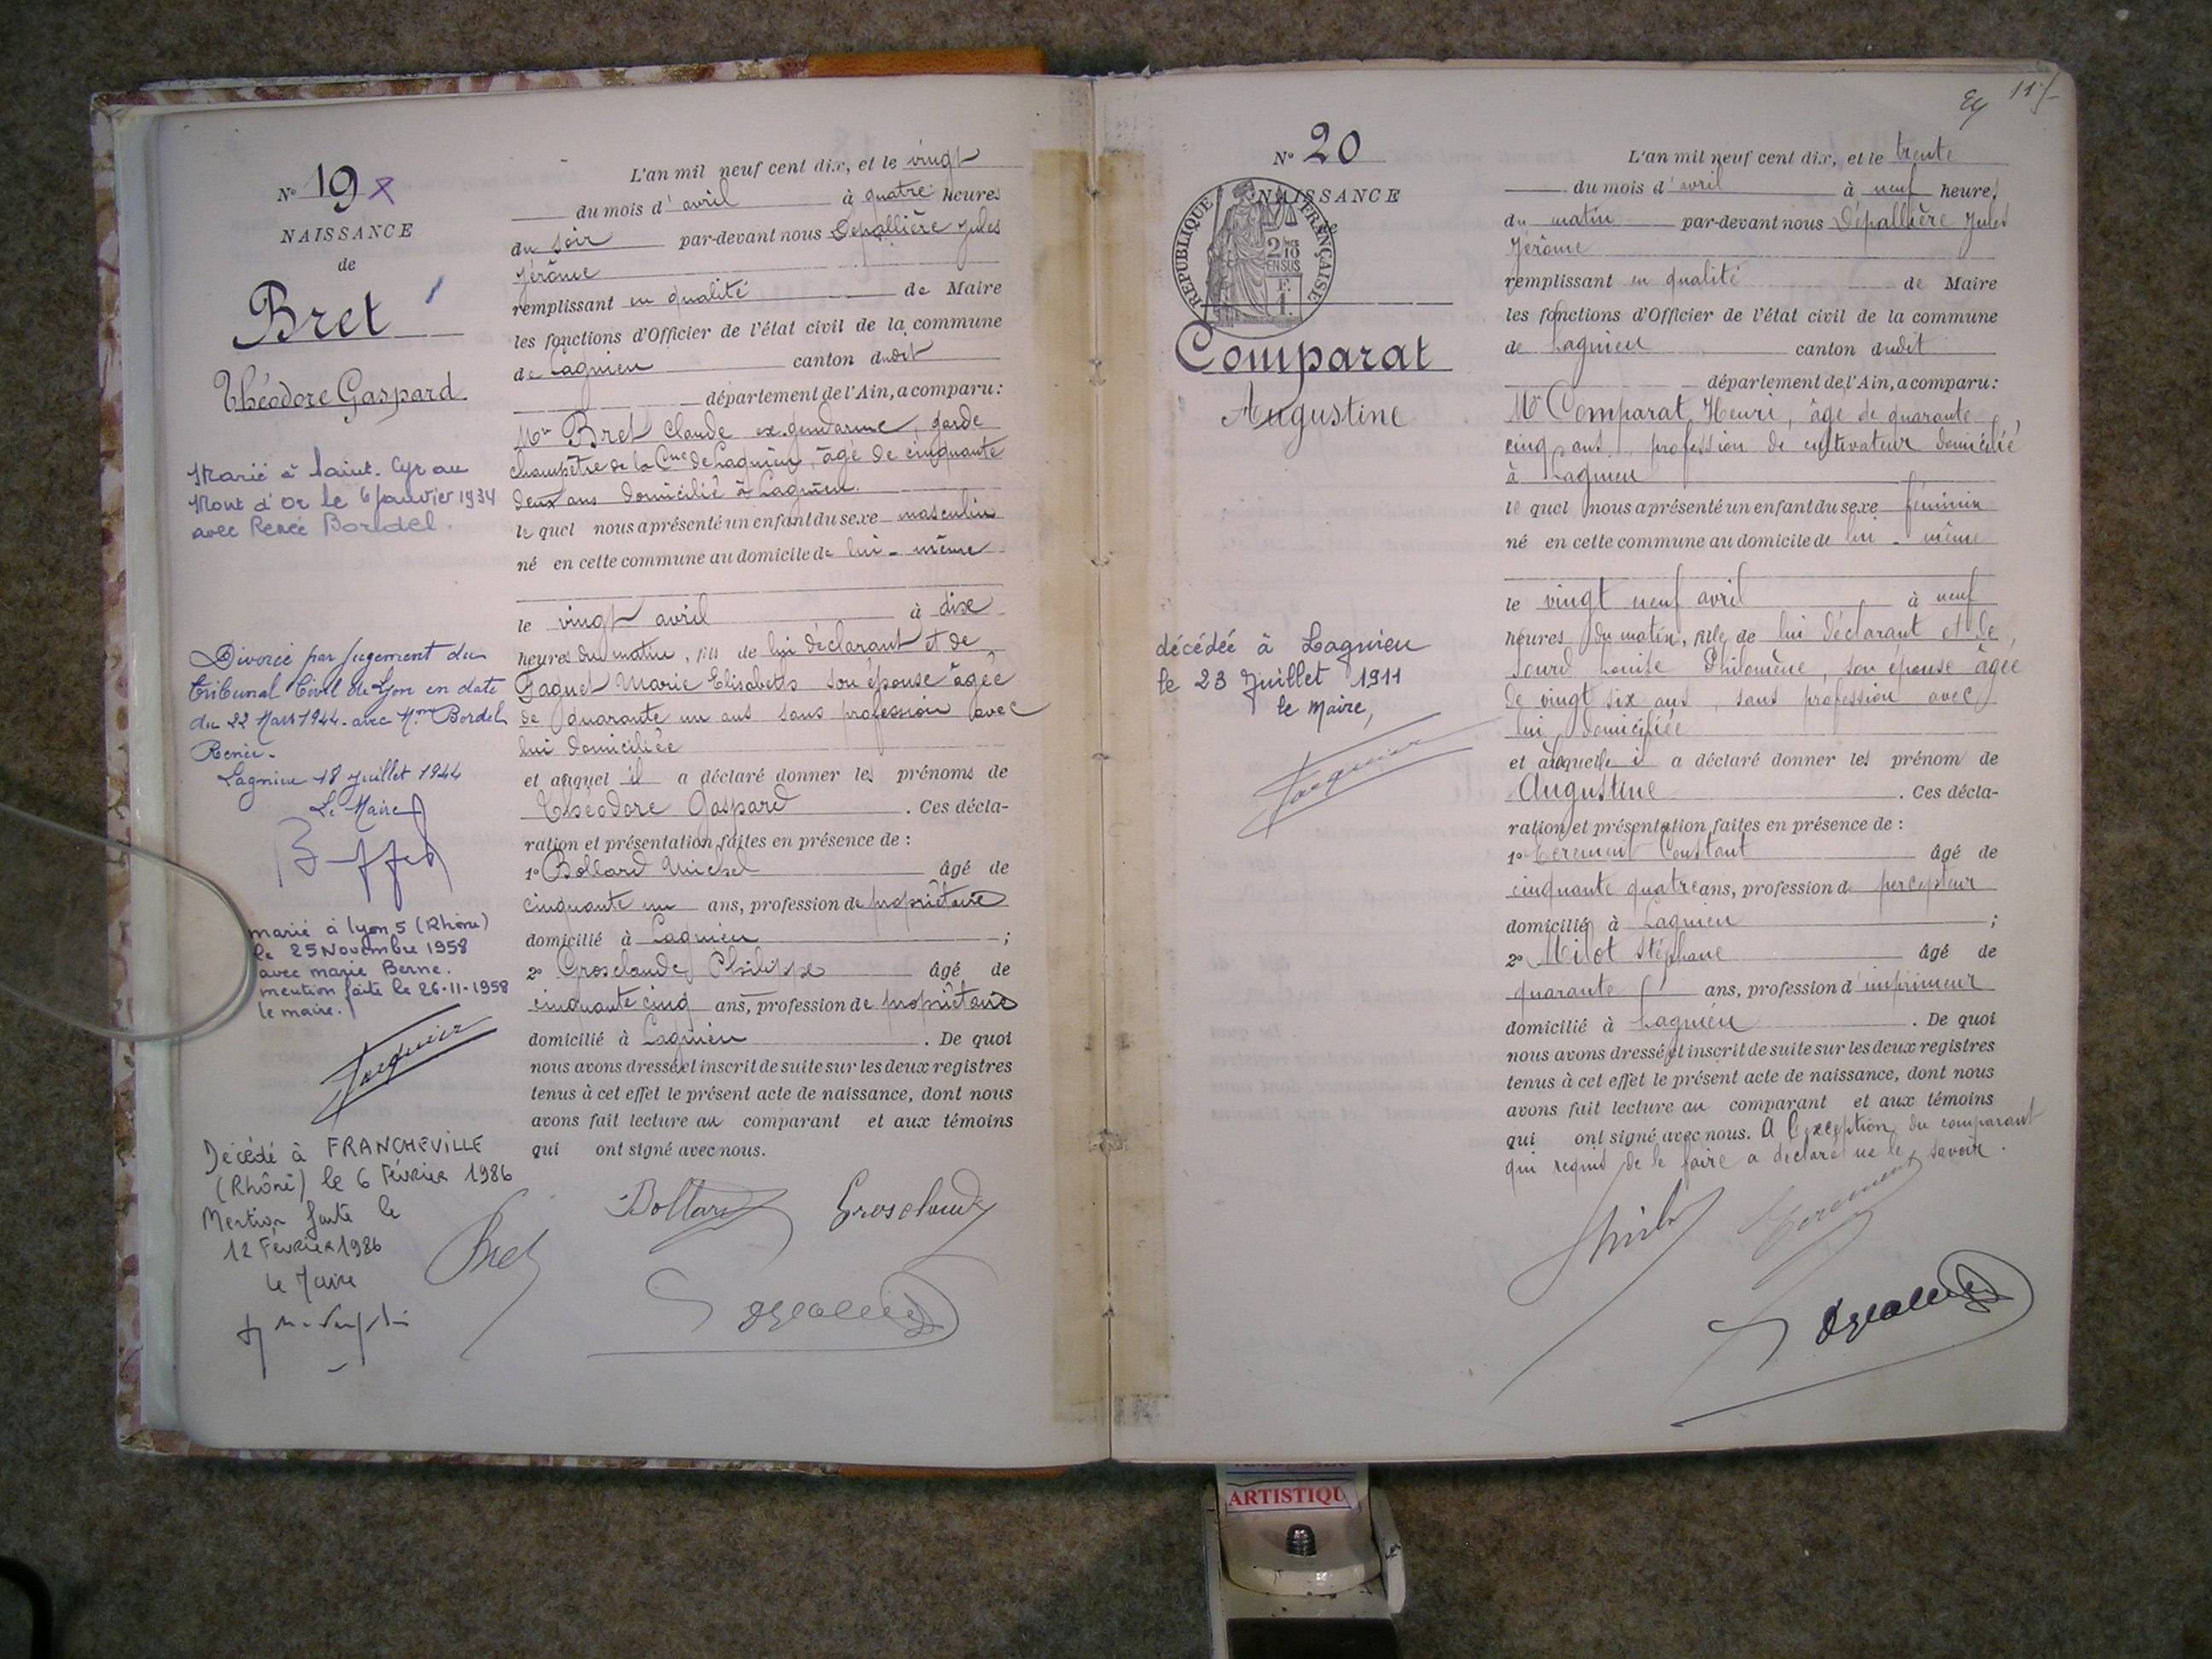 N° 19
NAISSANCE
de
Bret
Théodore Gaspard
Marié à Saint-Cyr au
Mont d'Or le 6 Janvier 1934
avec Renée Bordel.
Divorcé par Jugement du
Tribunal Civil de Lyon en date
du 22 Mars 1944 avec Mme Bordel
Renée.
Lagnieu 18 Juillet 1944
Le Maire
marié à Lyon 5 (Rhône)
le 25 Novembre 1958
avec marie Berne.
mention faite le 26-11-1958
le maire.
Décédé à FRANCHEVILLE
(Rhône) le 6 Février 1986
Mention faite le
12 Février 1986
le Maire
L'an mil neuf cent dix, et le vingt
du mois d'avril à quatre heures
du soir par-devant nous Dépallière Jules
Jérôme
remplissant en qualité de Maire
les fonctions d'Officier de l'état civil de la commune
de Lagnieu canton dudit
département de l'Ain, a comparu :
Mr Bret Claude ex-gendarme, garde
champêtre de la Cne de Lagnieu, âgé de cinquante
deux ans domicilié à Lagnieu.
le quel nous a présenté un enfant du sexe masculin
né en cette commune au domicile de lui-même
le vingt avril à dix
heures du matin, fils de lui déclarant et de
Jaquet Marie Elisabeth son épouse âgée
de quarante un ans sans profession avec
lui domiciliée
et auquel il a déclaré donner les prénoms de
Théodore Gaspard. Ces décla-
ration et présentation faites en présence de :
1° Bollard Michel âgé de
cinquante un ans, profession de propriétaire
domicilié à Lagnieu ;
2° Grosclaude Philippe âgé de
cinquante cinq ans, profession de propriétaire
domicilié à Lagnieu. De quoi
nous avons dressé et inscrit de suite sur les deux registres
tenus à cet effet le présent acte de naissance, dont nous
avons fait lecture au comparant et aux témoins
qui ont signé avec nous.
Bret Bollard Grosclaude
115
N° 20
NAISSANCE
de
RÉPUBLIQUE FRANÇAISE
2/10
EN SUS
F.
1.
Comparat
Augustine
décédée à Lagnieu
le 23 Juillet 1911
le Maire,
L'an mil neuf cent dix, et le trente
du mois d'avril à neuf heures
du matin par-devant nous Dépallière Jules
Jérôme
remplissant en qualité de Maire
les fonctions d'Officier de l'état civil de la commune
de Lagnieu canton dudit
département de l'Ain, a comparu :
Mr Comparat Henri, âgé de quarante
cinq ans, profession de cultivateur domicilié
à Lagnieu
le quel nous a présenté un enfant du sexe féminin
né en cette commune au domicile de lui-même
le vingt neuf avril à neuf
heures du matin, fille de lui déclarant et de
Sourd Louise Philomène, son épouse âgée
de vingt six ans sans profession avec
lui domiciliée
et à laquelle il a déclaré donner les prénom de
Augustine. Ces décla-
ration et présentation faites en présence de :
1° Constant âgé de
cinquante quatre ans, profession de percepteur
domicilié à Lagnieu ;
2° Milot Stéphane âgé de
quarante ans, profession d'imprimeur
domicilié à Lagnieu. De quoi
nous avons dressé et inscrit de suite sur les deux registres
tenus à cet effet le présent acte de naissance, dont nous
avons fait lecture au comparant et aux témoins
qui ont signé avec nous. A l'exception du comparant
qui requis de le faire a déclaré ne le savoir.
ARTISTIQU